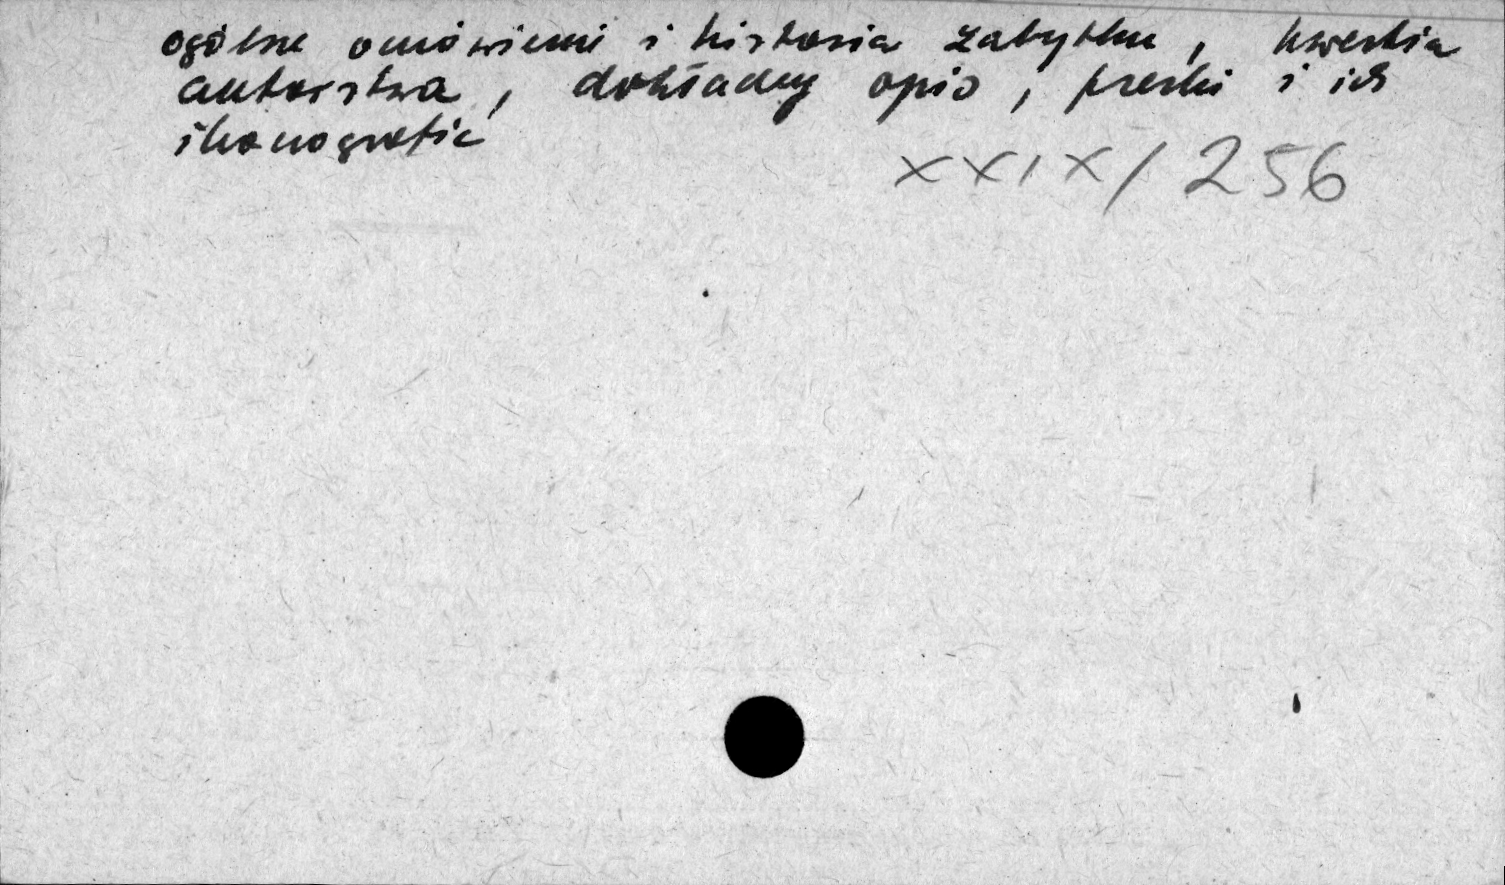 ogólne omówienie i historia zabytku, kwestia
autorstwa, dokładny opis, freski i ich
ikonografia
XXIX/256